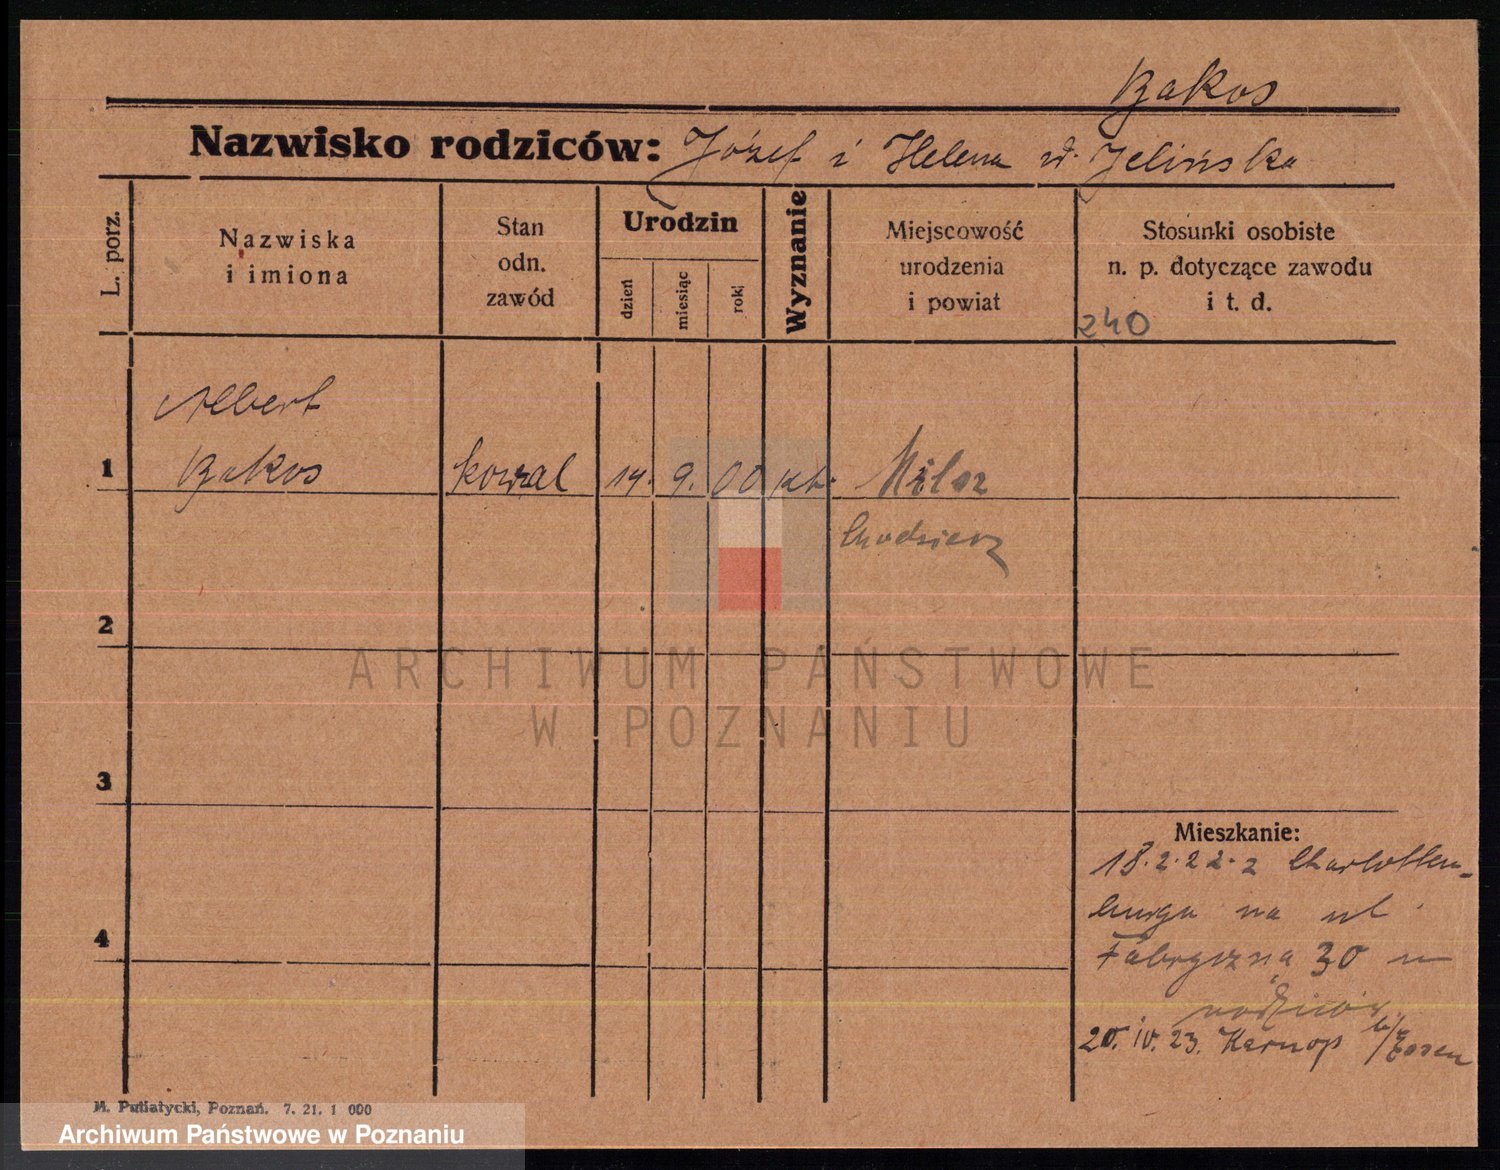 Bakos
Nazwisko rodziców: Józef i Helena d. Jelińska
L. porz.
Nazwiska
i imiona
Stan
odn.
zawód
Urodzin
dzień
miesiąc
rok
Wyznanie
Miejscowość
urodzenia
i powiat
Stosunki osobiste
n. p. dotyczące zawodu
i t. d.
240
Albert
1 Bakos kowal 14. 9. 00 kt.
Chodzież
2
ARCHIWUM PAŃSTWOWE
W POZNANIU
3
Mieszkanie:
18.2.22 z Charlotten-
burga na ul.
4
Fabryczna 30 u
rodziców
20. IV. 23.
M. Putiatycki, Poznań. 7. 21. 1 000
Archiwum Państwowe w Poznaniu